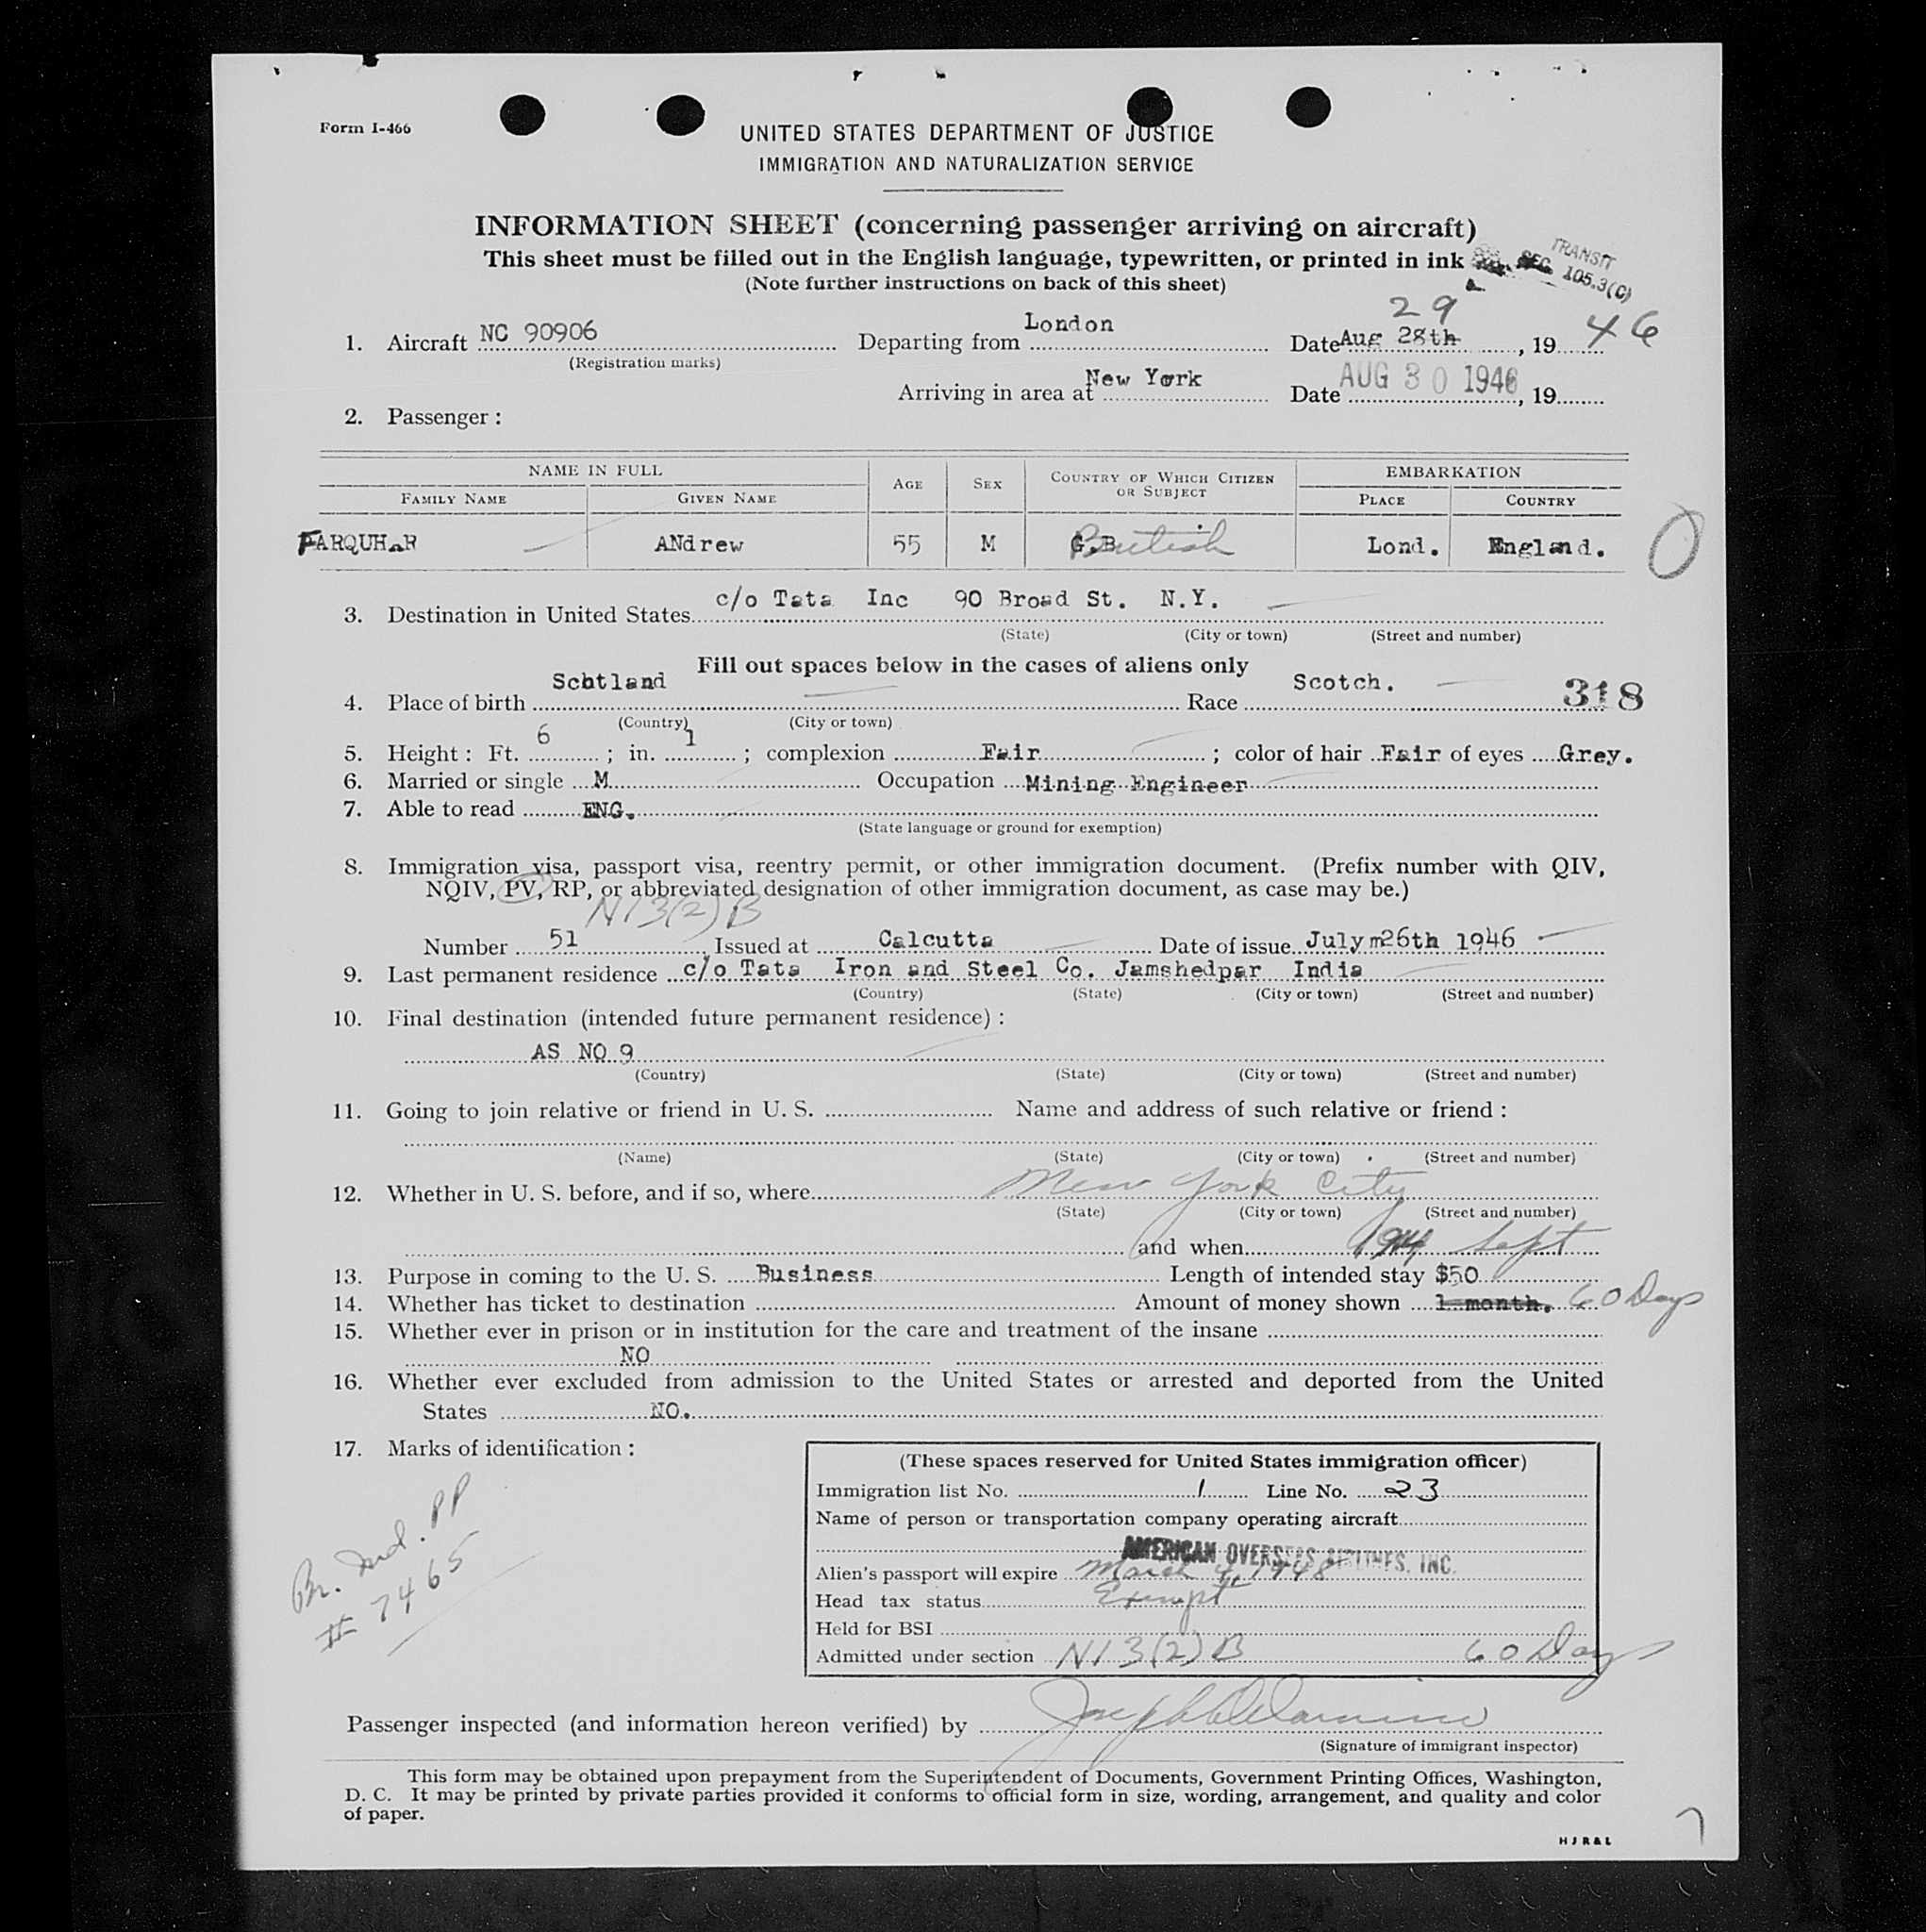 Form I-466
UNITED STATES DEPARTMENT OF JUSTICE
IMMIGRATION AND NATURALIZATION SERVICE
INFORMATION SHEET (concerning passenger arriving on aircraft)
This sheet must be filled out in the English language, typewritten, or printed in ink
TRANSIT
SEC 105.3(C)
(Note further instructions on back of this sheet)
29
1. Aircraft NC 90906 Departing from London Date Aug 28th, 19 46
(Registration marks)
Arriving in area at New York Date AUG 30 1946, 19
2. Passenger :
NAME IN FULL AGE SEX COUNTRY OF WHICH CITIZEN OR SUBJECT EMBARKATION
FAMILY NAME GIVEN NAME PLACE COUNTRY
FARQUHaR ANdrew 55 M G.B British Lond. England. O
3. Destination in United States c/o Tata Inc 90 Broad St. N.Y.
(State) (City or town) (Street and number)
Fill out spaces below in the cases of aliens only
4. Place of birth Scotland Race Scotch. 318
(Country) (City or town)
5. Height : Ft. 6 ; in. 1 ; complexion Fair ; color of hair Fair of eyes Grey.
6. Married or single M Occupation Mining Engineer
7. Able to read ENG.
(State language or ground for exemption)
8. Immigration visa, passport visa, reentry permit, or other immigration document. (Prefix number with QIV,
NQIV, PV, RP, or abbreviated designation of other immigration document, as case may be.)
N13(2)B
Number 51, Issued at Calcutta Date of issue Julym26th 1946
9. Last permanent residence c/o Tata Iron and Steel Co. Jamshedpar India
(Country) (State) (City or town) (Street and number)
10. Final destination (intended future permanent residence) :
AS NO 9
(Country) (State) (City or town) (Street and number)
11. Going to join relative or friend in U. S. Name and address of such relative or friend :
(Name) (State) (City or town) (Street and number)
12. Whether in U. S. before, and if so, where New York City
(State) (City or town) (Street and number)
and when Sept
13. Purpose in coming to the U. S. Business Length of intended stay $50
14. Whether has ticket to destination Amount of money shown 1 month. 60 Days
15. Whether ever in prison or in institution for the care and treatment of the insane
NO
16. Whether ever excluded from admission to the United States or arrested and deported from the United
States NO.
17. Marks of identification :
Br. Ind. PP
# 7465
(These spaces reserved for United States immigration officer)
Immigration list No. 1 Line No. 23
Name of person or transportation company operating aircraft
AMERICAN OVERSEAS AIRLINES, INC.
Alien's passport will expire March 4, 1948
Head tax status Exempt
Held for BSI
Admitted under section N13(2)B 60 Days
Passenger inspected (and information hereon verified) by Joseph
(Signature of immigrant inspector)
This form may be obtained upon prepayment from the Superintendent of Documents, Government Printing Offices, Washington,
D. C. It may be printed by private parties provided it conforms to official form in size, wording, arrangement, and quality and color
of paper.
HJR&L
7